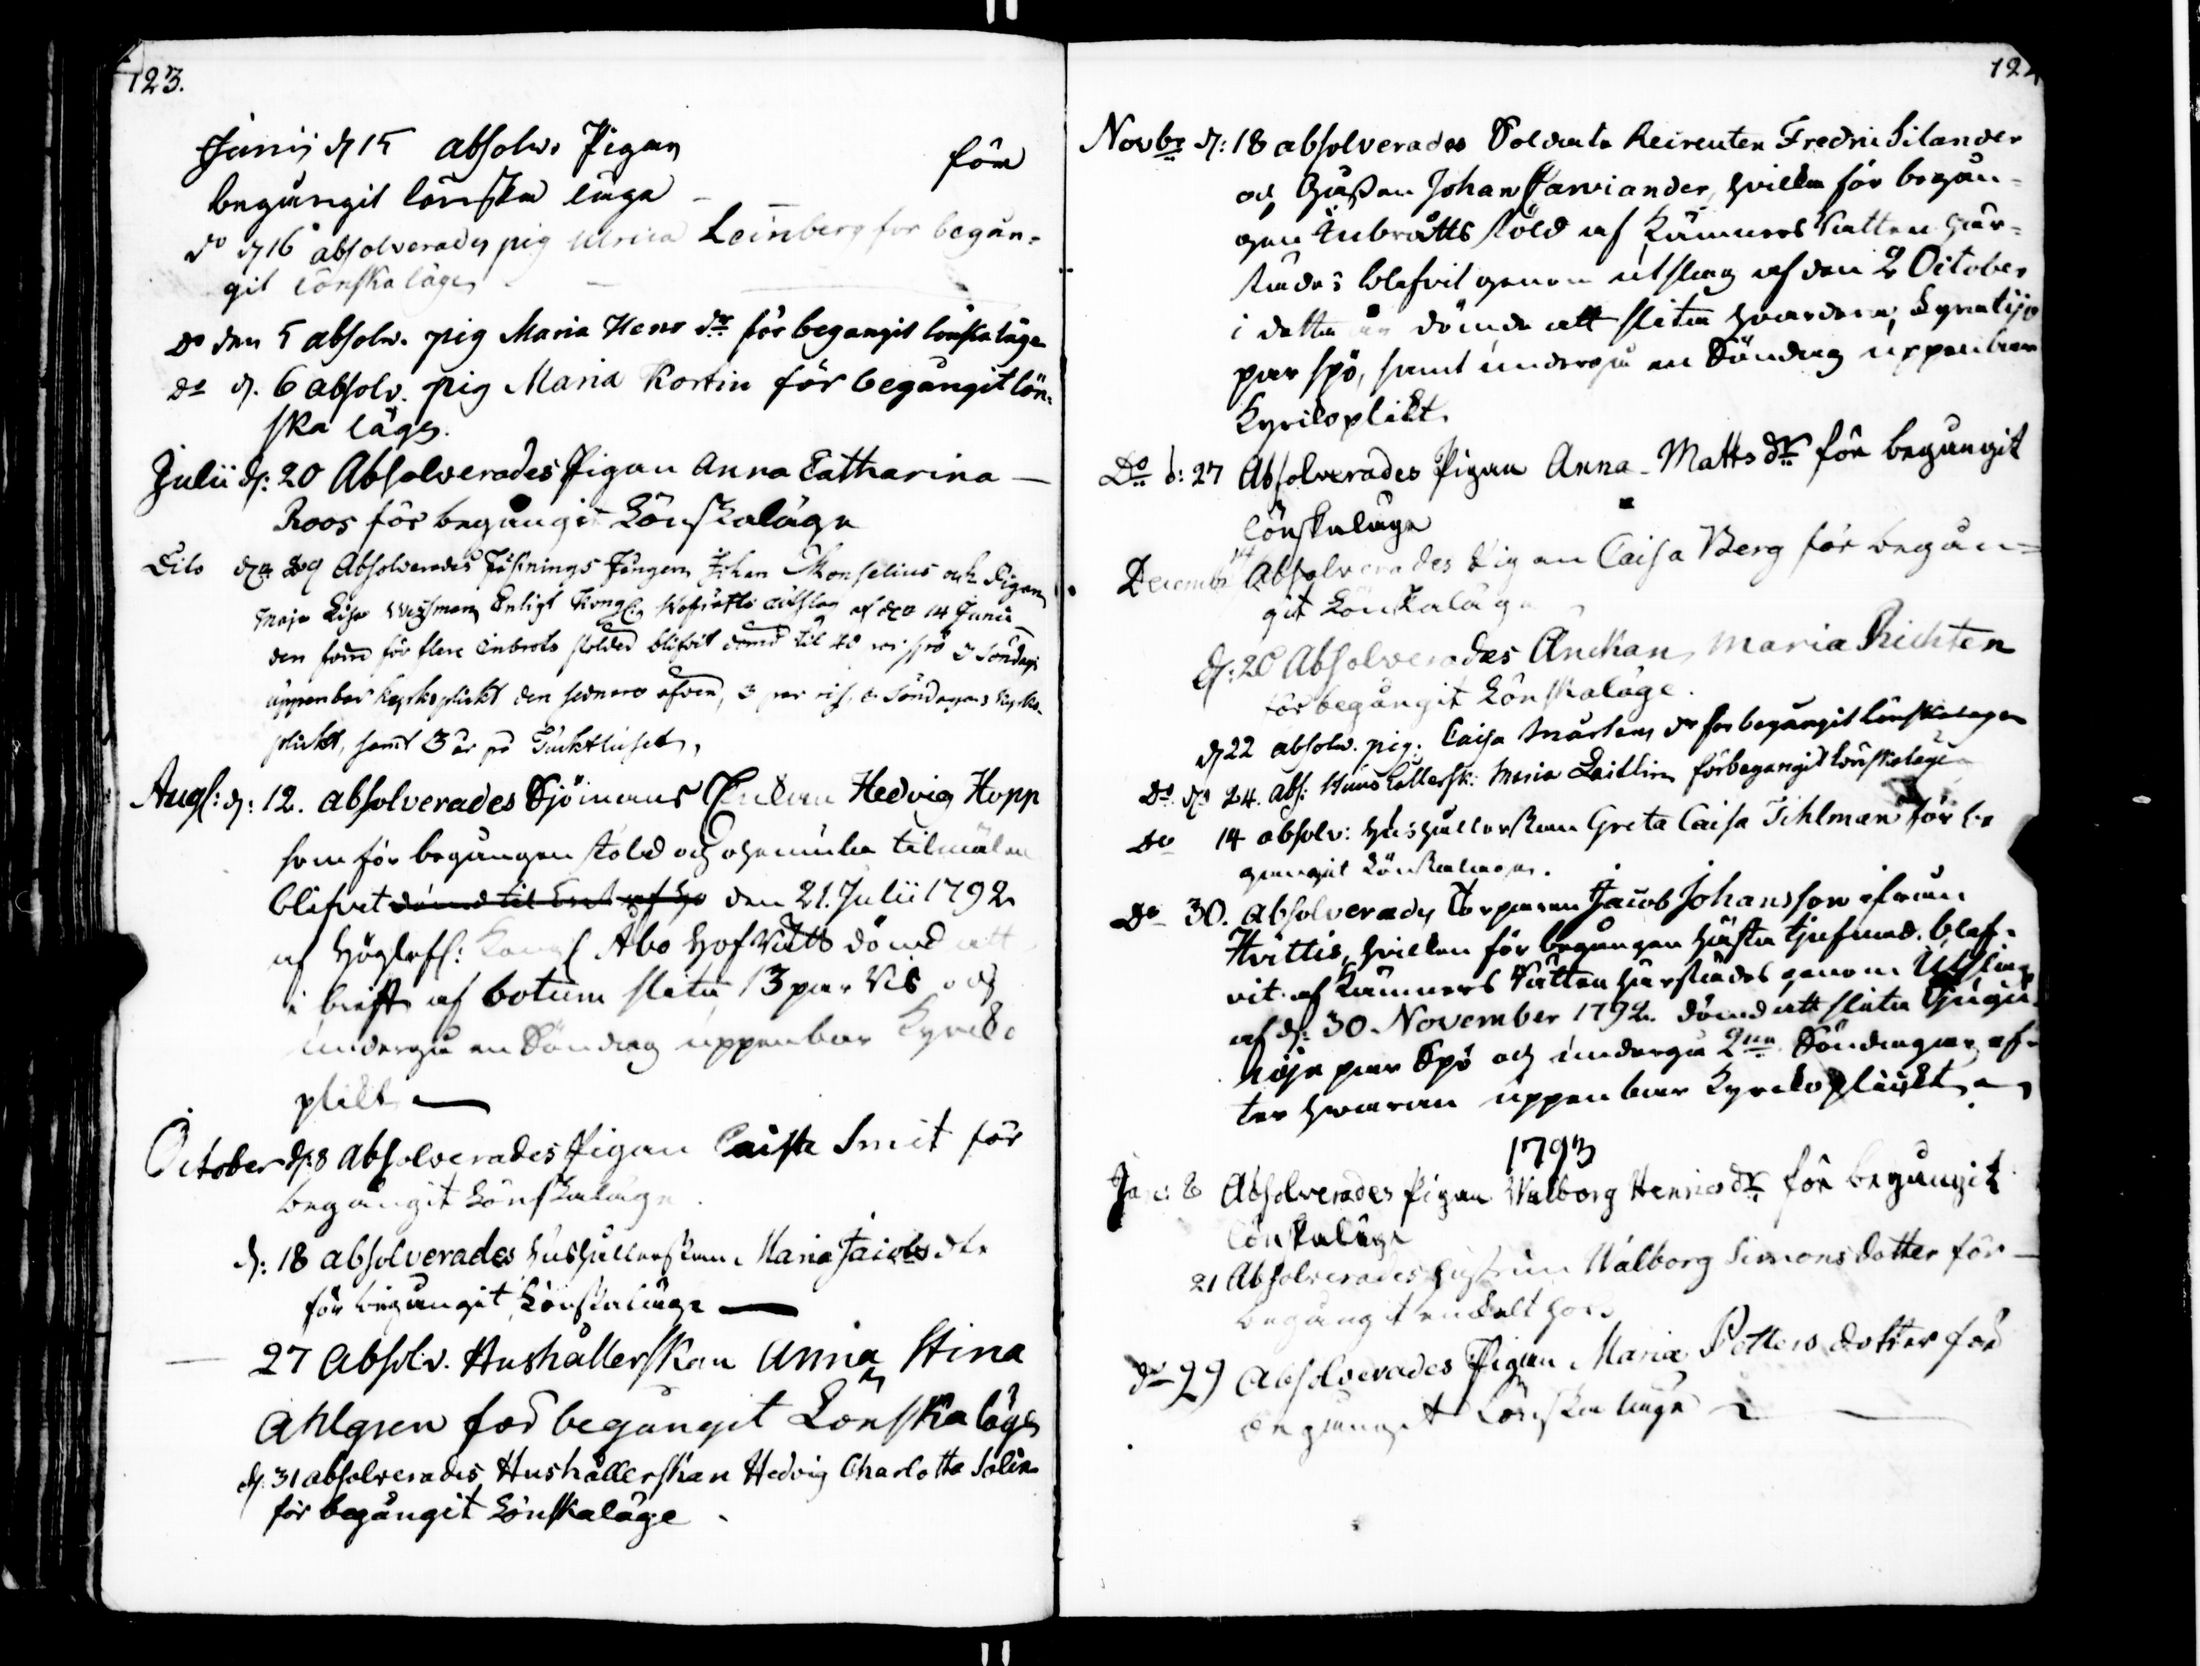 123.
Junij d. 15 absolv. Pigan för
begångit lönska läge
do d. 16 absolverades pig Ulrica Leinberg för begån-
git lönskaläge
Do den 5 absolv. pig Maria Henr dr för begångit lönskaläge
do d. 6 absolv. pig Maria Kortin för begångit lön-
ska läge.
Julii d: 20 Absolverades Pigan Anna Catharina
Roos för begångit Lönskaläge
Dito d. 29 Absolverades Fästnings Fången Johan Monselius och Pigan
Maja Lisa Enligt Kongl. Hofrätts utslag af d. 14 Junii
den förre för flere inbrots stölder blifvit dömd til 40 par spö 3 Söndags
uppenbar kyrkoplikt den senare 3 par ris, Söndagens kyrko-
plikt, samt 3 år på Tuckthuset.
Augs: d: 12. absolverades Sjömans Enkan Hedvig Hopp
som för begången stöld och tilmälen
blifvit dömd til den 21. Julii 1792
af Höglofl: Kongl Åbo HofRätt dömd att
i brist af botum slita 13 par Ris och
undergå en Söndag uppenbar Kyrko
plikt
October d: 8 Absolverades Pigan Caisa Smit för
begångit Lönskaläge.
d: 18 absolverades Hushållerskan Maria Jacobs dtr
för begångit Lönskaläge
27 Absolv. Hushållerskan Anna Stina
Ahlgren för begångit Lönskaläge
d: 31 absolverades Hushållerskan Hedvig Charlotta Solin
för begångit Lönskaläge.
124
Novbr d: 18 absolverades Soldats Fredric Silander
och Gossen Johan Carviander, hvilka för begån-
gen Inbrotts stöld af Kämners Rätten här-
städes blefvit genom utslag af den 2 October
i detta år dömde att slita hvardera, Fyratijo
par spö, samt undergå en Söndag uppenbar
Kyrkoplikt.
Do d: 27 Absolverades Pigan Anna Matts dr för begångit
lönskaläge
Decembr 14 Absolverades Pigan Caisa Berg för begån-
git Lönskaläge
d: 20 Absolverades Änckan Maria Richten
för begångit Lönskaläge.
d. 22 absolv. pig: Caisa Mårtens dr för begångit lönskaläge
Do d. 24. abs: Hushållersk: Maria Quidlin för begångit lönskaläge
Do 14 absolv: hushållerskan Greta Caisa Tihlman för be
gångit Lönskaläge.
Do 30. absolverades Torparen Jacob Johansson ifrån
Hvittis, hvilken för begången hästa tjufnad blef-
vit af Kämners Rätten härstädes genom Utslag
af d: 30 November 1792. dömd att slita Tjugu
nijo par Spö och undergå 2ne Söndagar ef-
ter hvaran uppenbar kyrkoplickt
1793
Jan: 8 Absolverades Pigan Walborg Henrics dr för begångit
Lönskaläge
21 Absolverades hustrun Walborg Simons dotter för
begångit enckelt hor.
do 29 Absolverades Pigan Maria Petters dotter för
begångit Lönskaläge